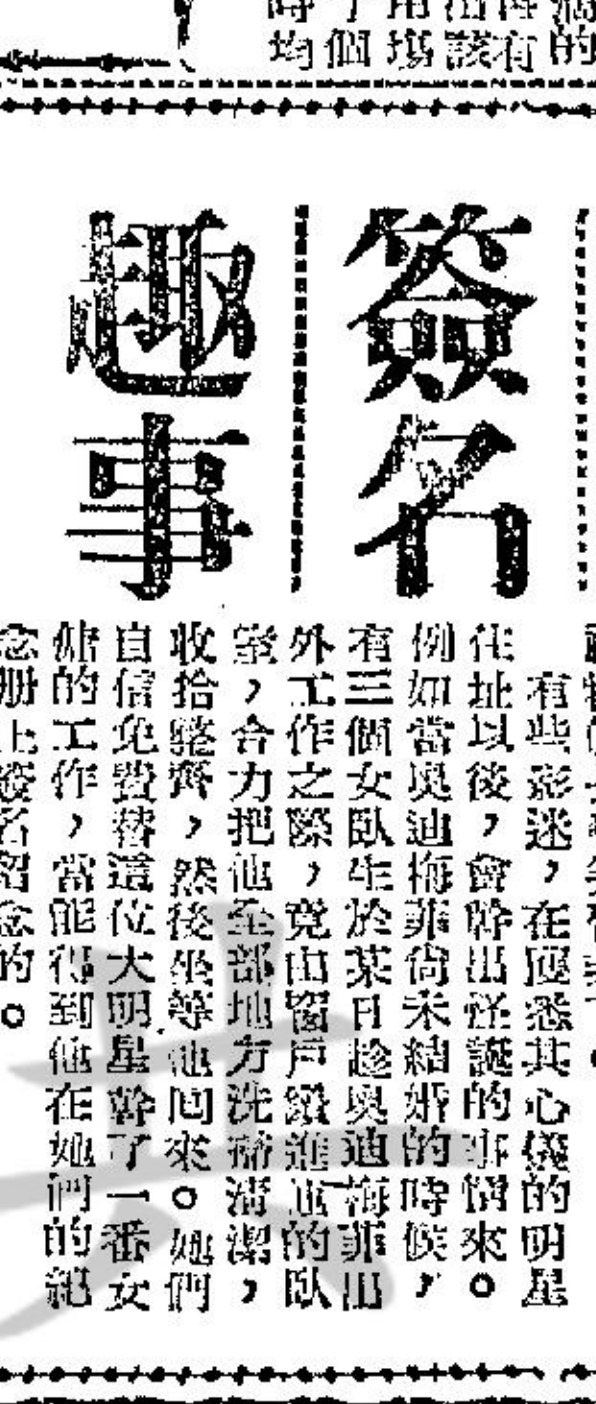 簽名
趣事
有些影迷，在頂悉其心儀的明星
住址以後，會幹出怪誕的事情來。
例如當奥迪梅菲尚未結婚的時候，
有三個女臥生於某日趁奥迪梅菲出
外工作之際，竟由窗戶鑽進他的臥
室，合力把他全部地方洗擦清潔，
收拾整齊，然後坐等他囘來。她們
自信免費替這位大明星幹了一番女
傭的工作，當能得到他在她們的紀
念册上簽名留念的。